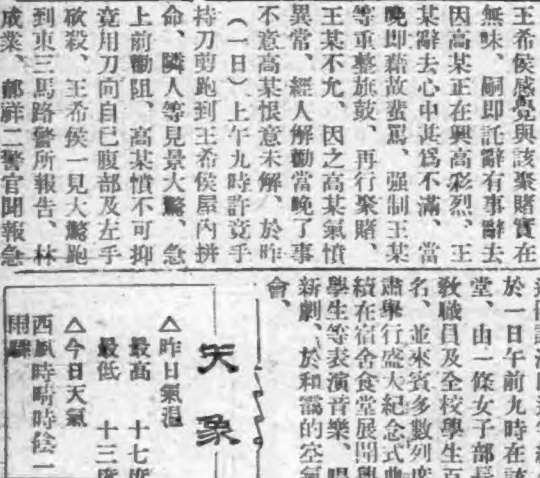 王希侯感覺與該聚賭實在
無味、嗣即託辭有事辭去
因高某正在興高彩烈、王
某辭去心中甚爲不滿、當
晩即藉故蜚罵、强制王某
等重整旗鼓、再行聚賭、
王某不允、因之高某氣憤
異常、經人解勸當晚了事
不意高某恨意未解、於昨
(一日)上午九時許竟手
持刀剪跑到王希侯屋內拼
命、隣人等見景大驚、急
上前勸阻、高某憤不可抑
竟用刀向自已腹部及左手
砍殺、王希侯一見大驚跑
到東三馬路警所報告、林
成業、郝祥二警官聞報急
於一日午前九時在該
堂、由一條女子部長
敎職員及全校學生百
名、並來賓多數列席
肅舉行盛大紀念式典
續在宿舍食堂展開與
學生等表演音樂、唱
新劇、於和靄的空氣
會、
天象
△昨日氣温
最高 十七度
最低 十三度
△今日天氣
西風時晴時陰一